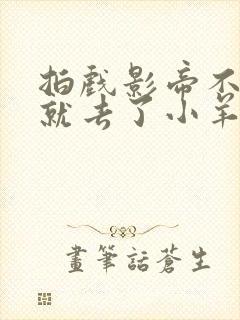 拍戏影帝不
就去了小羊
畫筆話蒼生